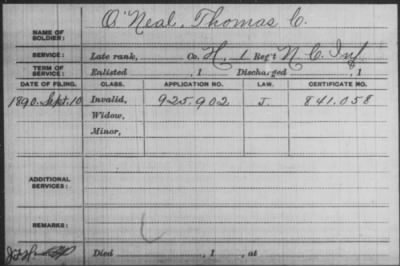 NAME OF SOLDIER: O'Neal, Thomas C.
SERVICE: Late rank, Co. H, 1 Reg't N. C. Inf
TERM OF SERVICE: Enlisted , 1 Discharged , 1
DATE OF FILING. CLASS. APPLICATION NO. LAW. CERTIFICATE NO.
1890. Sept. 10 Invalid, 925.902 J. 841.058
Widow,
Minor,
ADDITIONAL SERVICES:
REMARKS:
Died , 1 , at